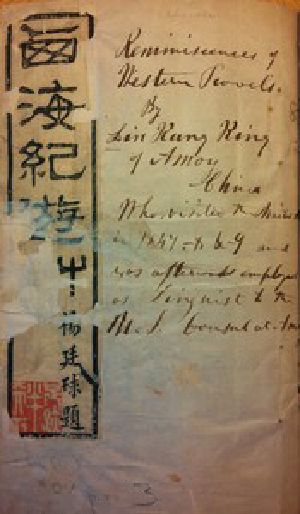 西海紀遊屮
楊廷球題
Reminiscences of
Western Travels.
By
Lin King
of Amoy
China
Who visited
in 1847 to 49 and
was afterwards employed
as Linguist to the
U.S. Consul at